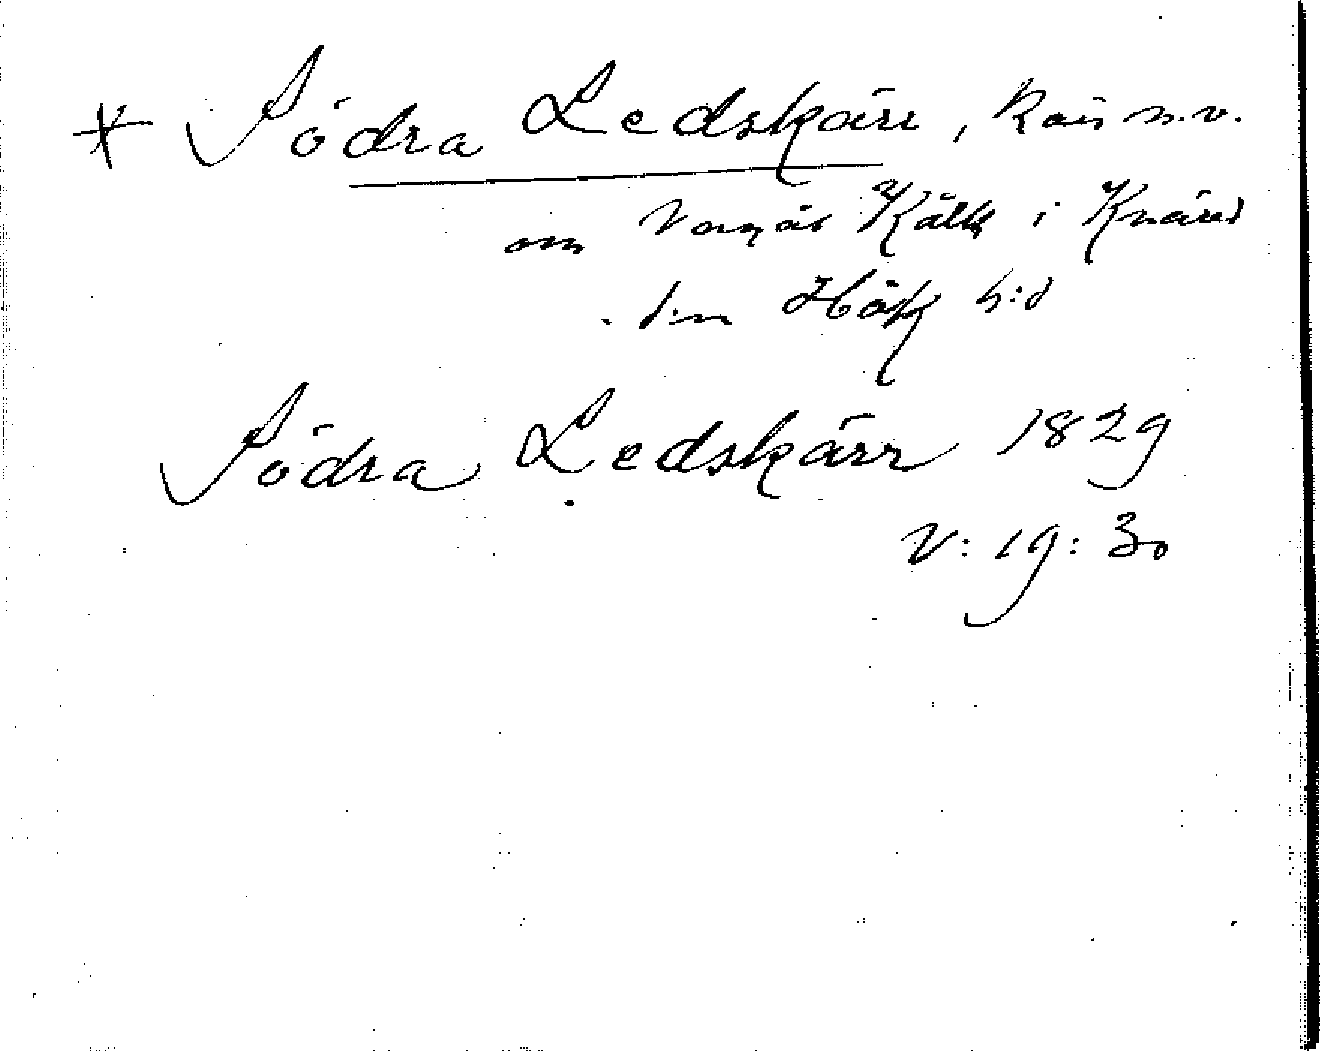 * Södra Ledskärr, kärr n.v.
om Vagnås Kälk i Knäred
sn Hök h:d
Södra Ledskärr 1829
V: 19: 30